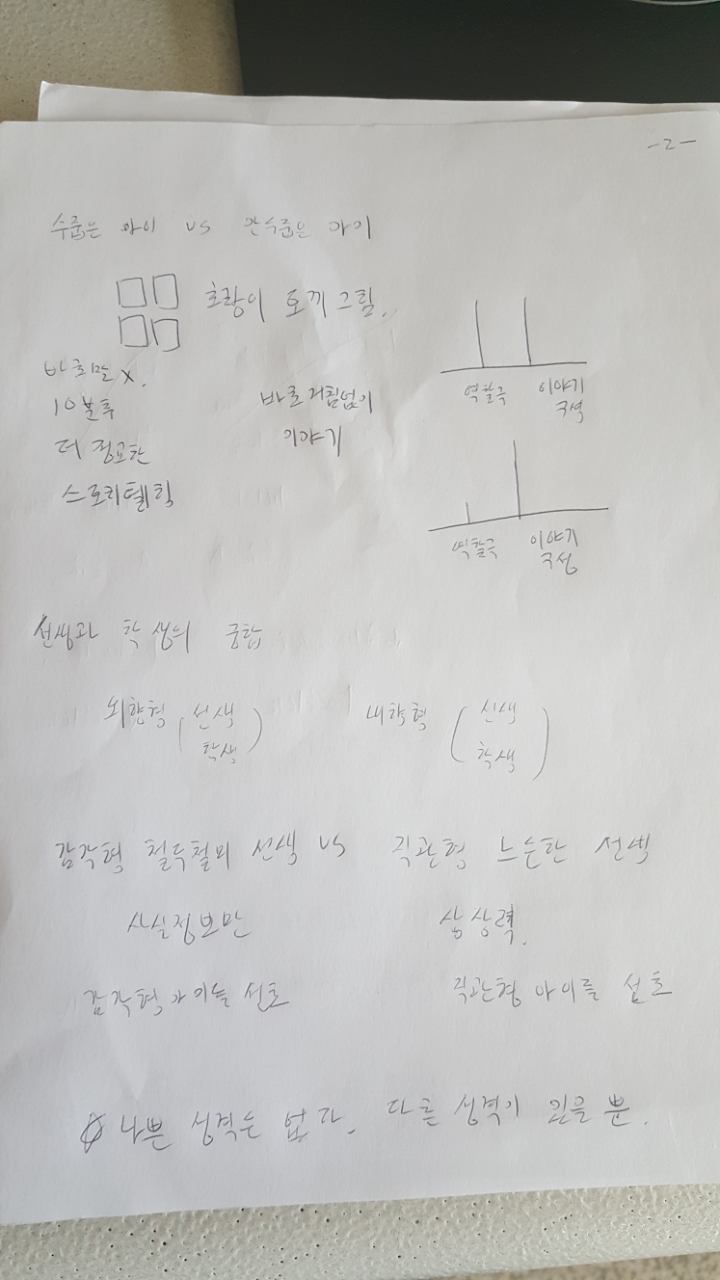 -2-
수줍은 아이 vs 안수줍은 아이
호랑이 토끼 그림.
바로말 x.
10분후
더 정교한
스토리텔링
바로 거침없이
이야기
역할극 이야기
구성
역할극 이야기
구성
선생과 학생의 궁합
외향형 (선생
학생)
내향형 (선생
학생)
감각형 철두철미 선생 vs 직관형 느슨한 선생
사실정보만 상상력.
감각형아이를 선호 직관형 아이를 선호
☆ 나쁜 성격은 없다. 다른 성격이 있을 뿐.